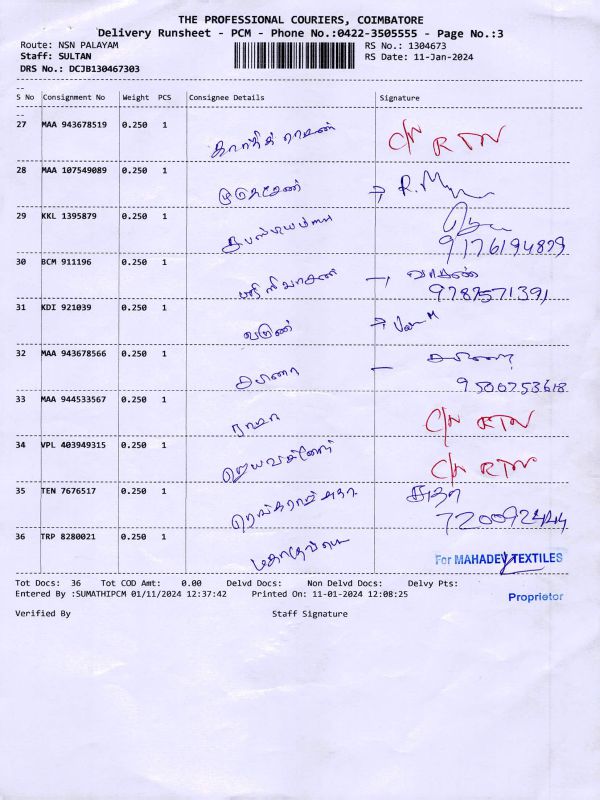 THE PROFESSIONAL COURIERS, COIMBATORE
Delivery Runsheet - PCM - Phone No.:0422-3505555 - Page No.:3
Route: NSN PALAYAM RS No.: 1304673
Staff: SULTAN RS Date: 11-Jan-2024
DRS No.: DCJB130467303
S No Consignment No Weight PCS Consignee Details Signature
27 MAA 943678519 0.250 1 C/N RTN
28 MAA 107549089 0.250 1
29 KKL 1395879 0.250 1
9176194879
30 BCM 911196 0.250 1 ஸ்ரீநிவாசன்
9787571391
31 KDI 921039 0.250 1 வருண்
32 MAA 943678566 0.250 1 சபினா
9500753618
33 MAA 944533567 0.250 1 ராஜா C/N RTN
34 VPL 403949315 0.250 1 C/N RTN
35 TEN 7676517 0.250 1 சுதா
36 TRP 8280021 0.250 1 For MAHADEV TEXTILES
Tot Docs: 36 Tot COD Amt: 0.00 Delvd Docs: Non Delvd Docs: Delvy Pts:
Entered By :SUMATHIPCM 01/11/2024 12:37:42 Printed On: 11-01-2024 12:08:25
Proprietor
Verified By Staff Signature